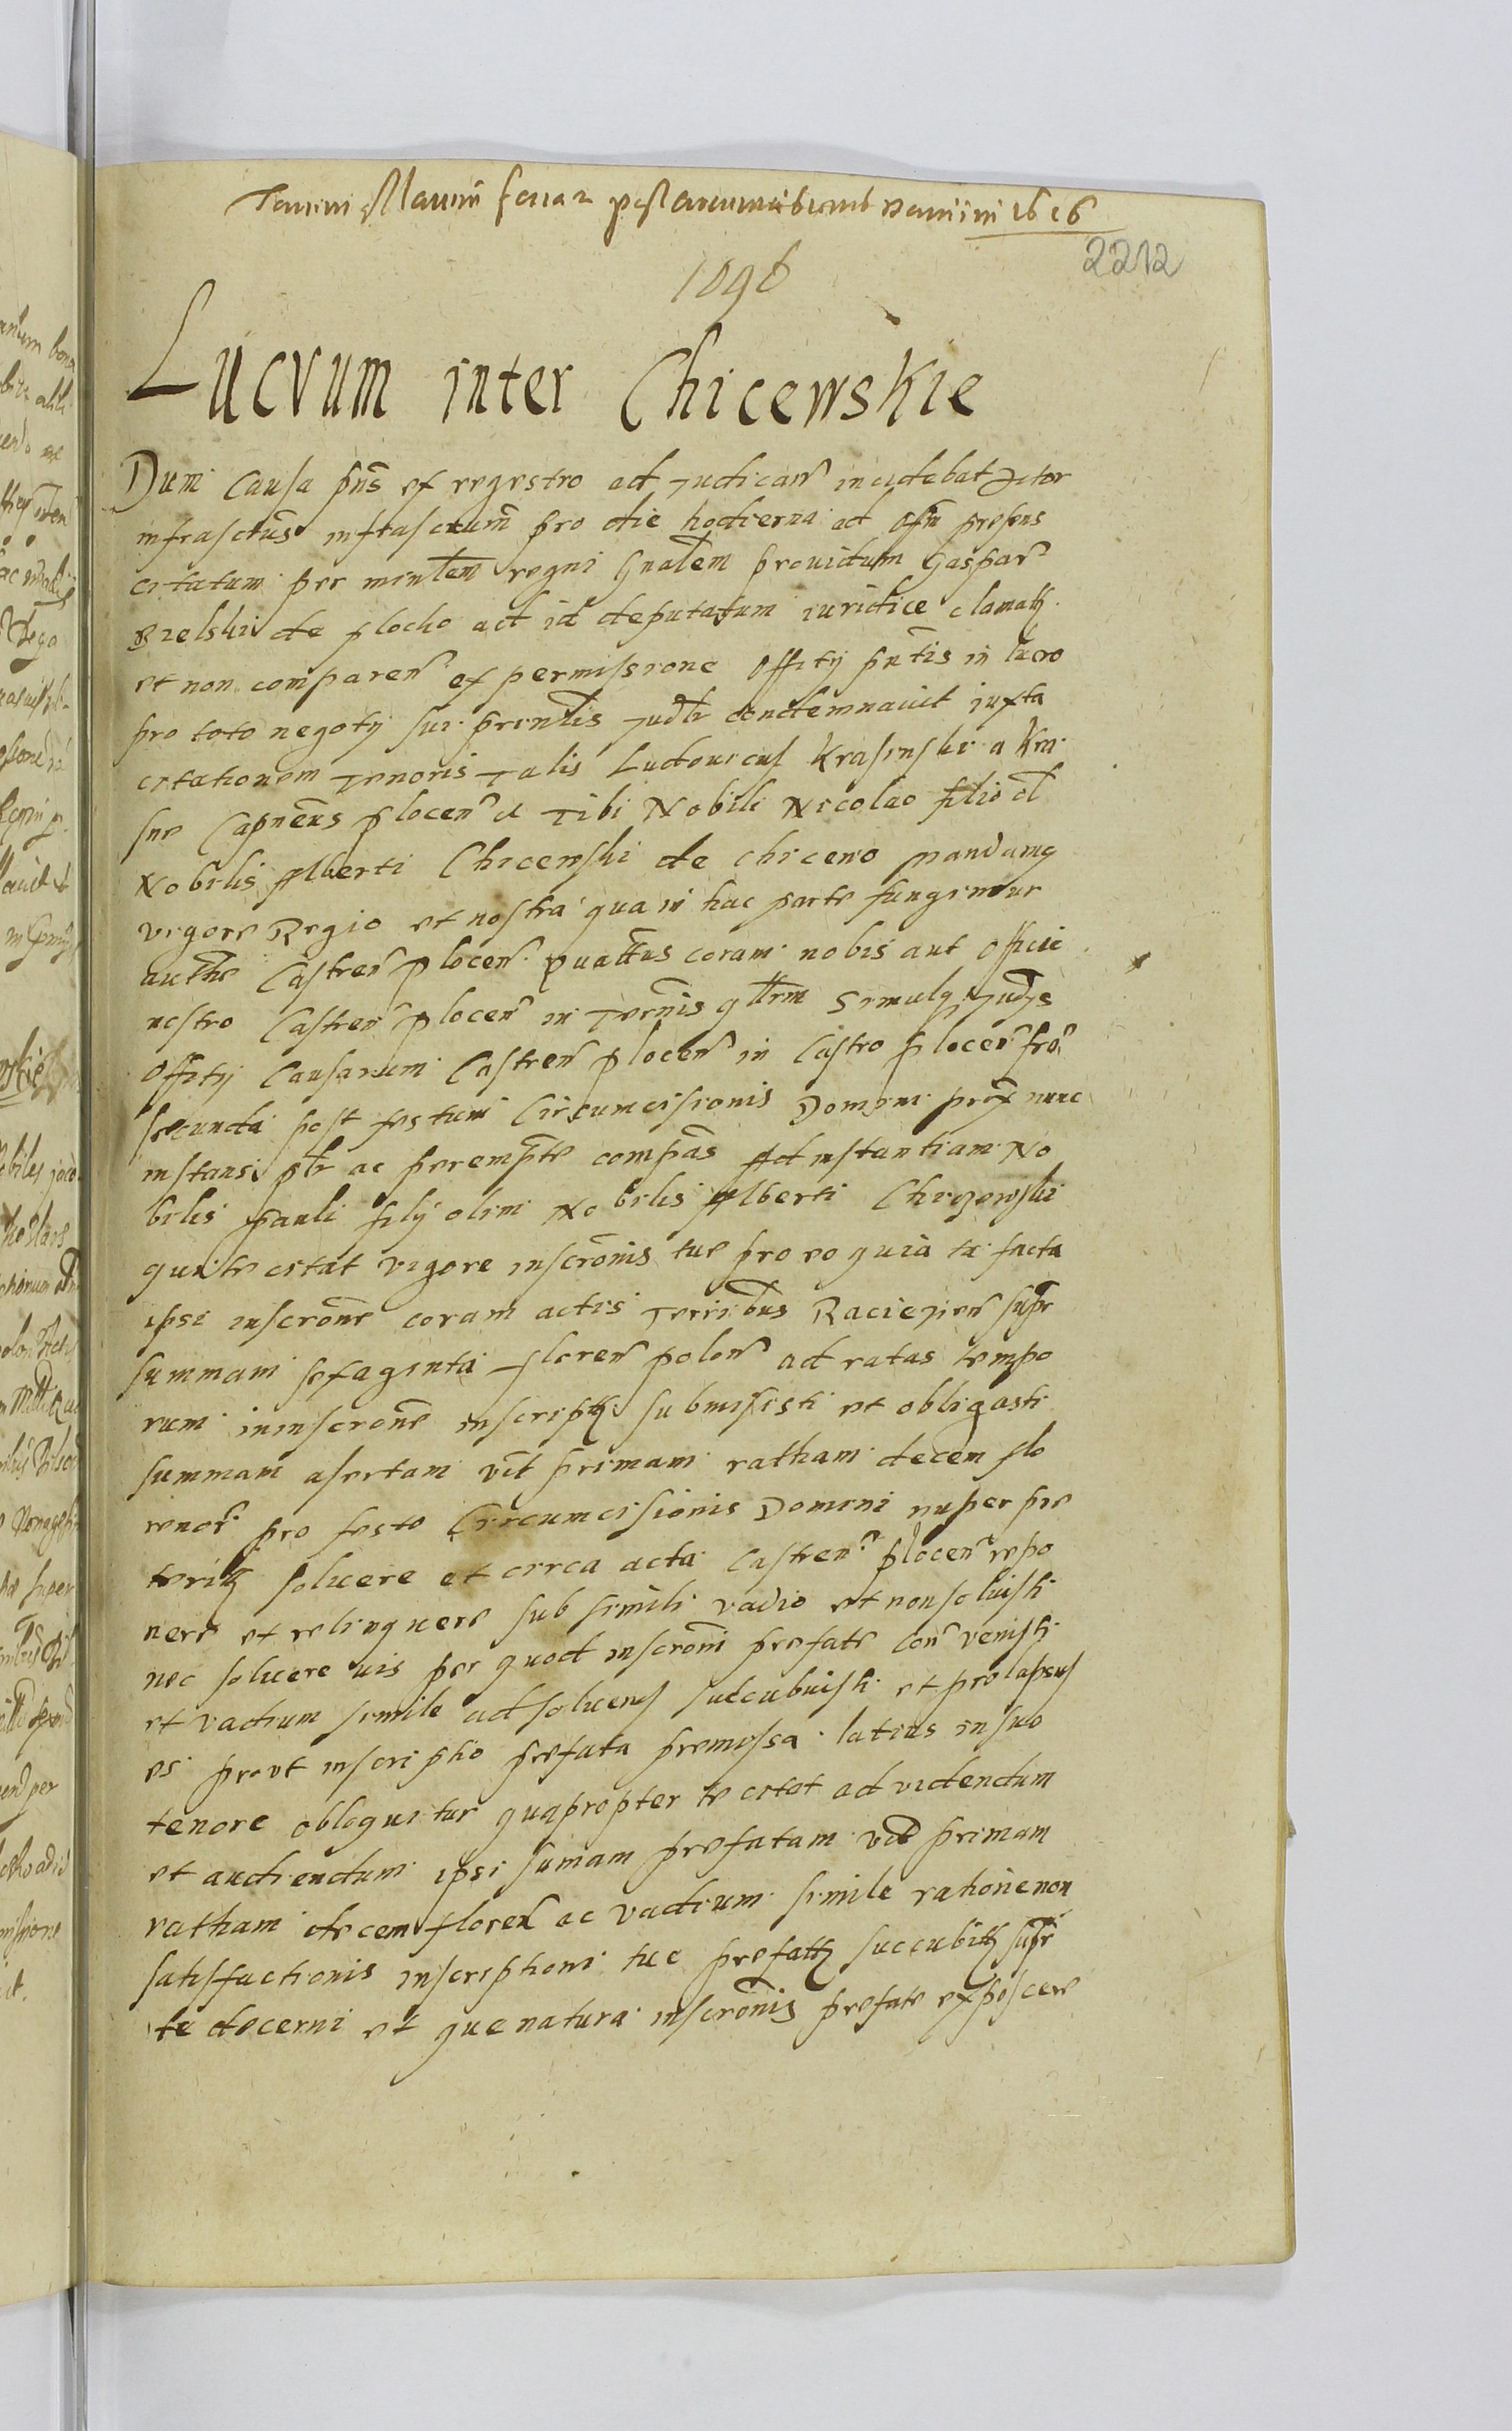 feria 2 post 1616
2212
1096
Lucrum inter Chicewskie
Dum Causa pñs ex regestro ad Judicanḋ incidebat Actor
infrascrus infrascrum pro die hodierna ad Offm presens
citatum per minlem regni Gnalem providum Gaspar
Bielski de plocko ad id deputatum iuridice clamatu
et non comparen ex permissione Offity pntis in lucro
pro toto negoty sui prinlis Judlr condemnavit iuxta
citationem Tenoris Talis Ludovicus Krasinski a Kra
sne Capneus plocen & Tibi Nobili Nicolao filio ol
Nobilis Alberti Chicewski de chicewo mandamq
vigore Regio et nostra qua in hac parte fungimur
authe Castren plocen quattus coram nobis aut Officio
nostro Castren plocen in Terminis qllrm Simulq Judys
Offity Causarum Castren plocen in Castro plocen fra
secunda post festum Circumcisionis Domini prox nunc
instansi plr ac perempte compas Ad instantiam No
bilis Pauli fily olim Nobilis Alberti Chicewski
qui te citat vigore inscronis tue pro eo quia tu facta
ipsi inscrone coram actis Terribus Raciezien supr
summam sexaginta floren polon ad ratas tempo
rum in inscrone inscriptu submisisti et obligasti
summam asertam vid primam ratham decem flo
renor pro festo Circumcisionis Domini nuper pre
teritu solvere et circa acta Castren plocen repo
nere et relinquere sub simili vadio et non soluisti
nec solvere vis per quod inscroni prefate con venisti
et vadium simile ad solvens succubuisti et prolapsus
es prout inscriptio prefata premissa latius in suo
tenore obloquitur quapropter te citat ad videndum
et audiendum ipsi sumam prefatam vid primam
ratham decem floren ac vadium simile ratione non
satisfactionis inscriptioni tue prefattu succubitu supr
te decerni et que natura inscronis prefate exposcere